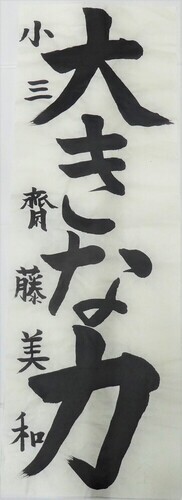 大きな力
小三 齊藤美和